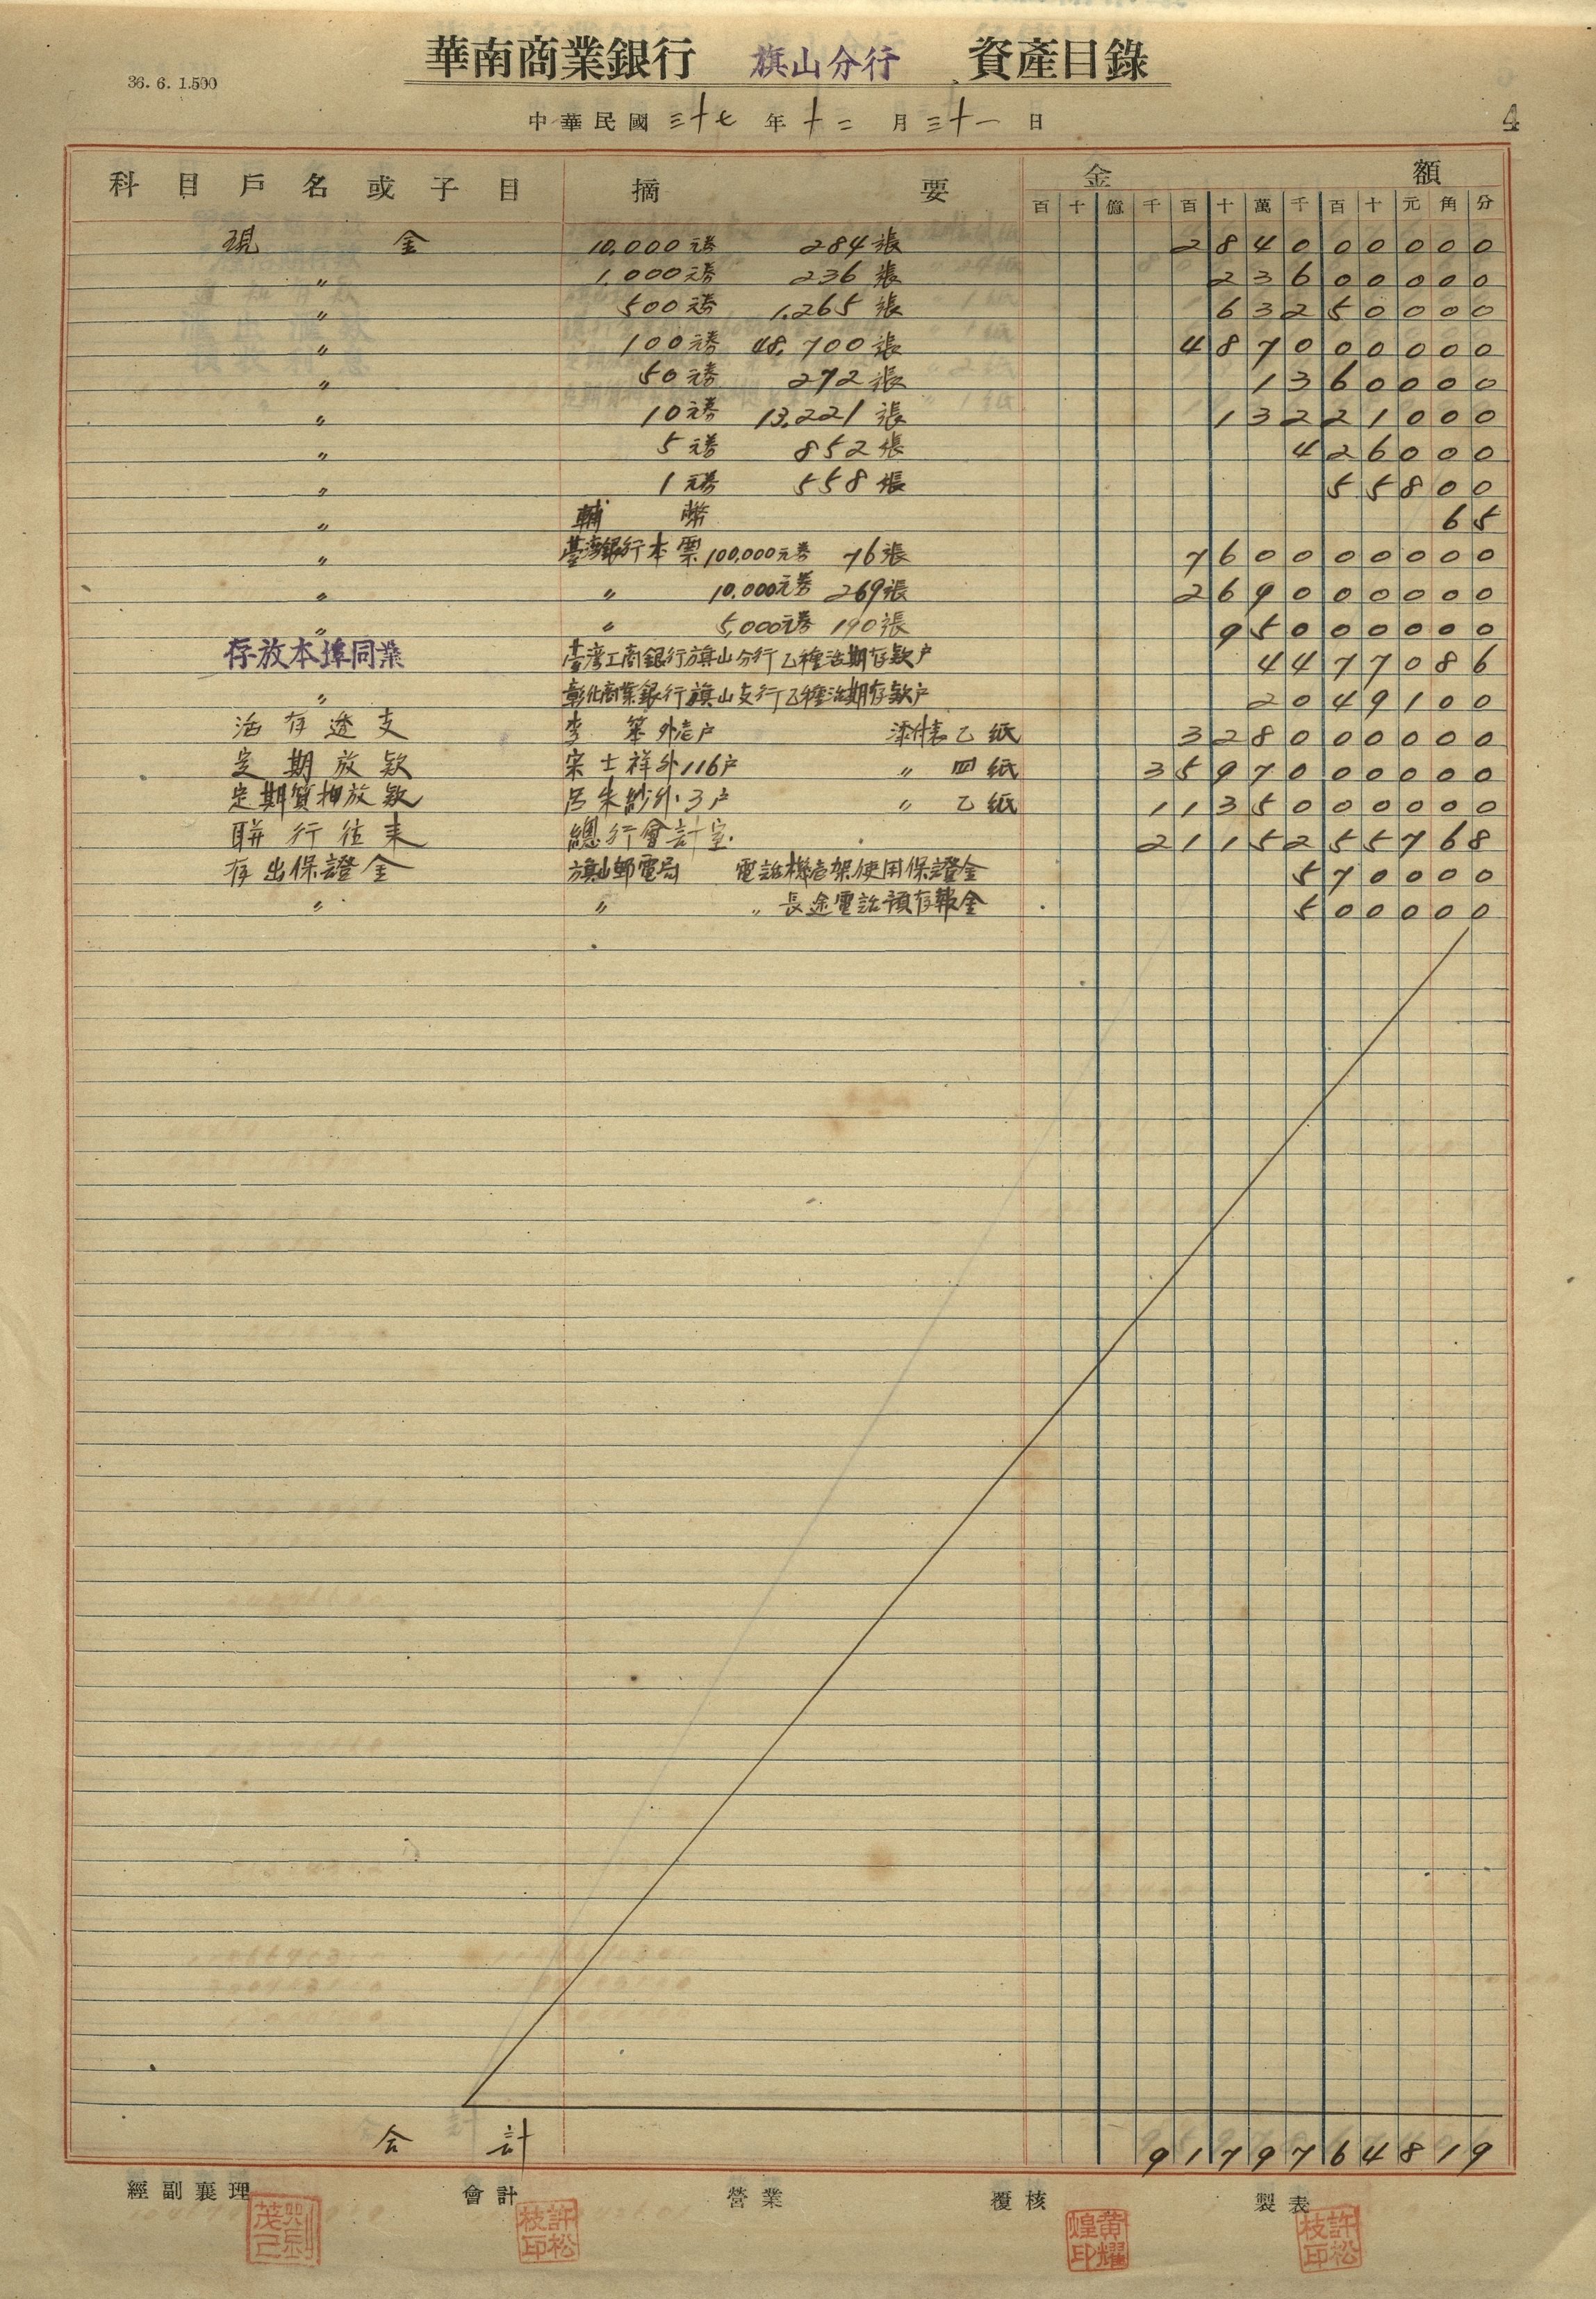 華南商業銀行 旗山分行 資產目錄
36. 6. 1.500
中華民國三十七年十二月三十一日
4
科目戶名或子目 摘要 金額
百 十 億 千 百 十 萬 千 百 十 元 角 分
現金 10,000元券 284張 2840000000
〃 1,000元券 236張 23600000
〃 500元券 1,265張 63250000
〃 100元券 48,700張 487000000
〃 50元券 272張 1360000
〃 10元券 13,221張 13221000
〃 5元券 852張 426000
〃 1元券 558張 55800
〃 輔幣 65
〃 臺灣銀行本票 100,000元券 76張 760000000
〃 〃 10,000元券 269張 269000000
〃 〃 5,000元券 190張 95000000
存放本埠同業 臺灣工商銀行旗山分行乙種活期存款戶 4477086
〃 彰化商業銀行旗山支行乙種活期存款戶 2049100
活存透支 李 外壱戶 添付表乙紙 328000000
定期放款 宋士祥外116戶 〃 四紙 3597000000
定期質押放款 呂朱紗外3戶 〃 乙紙 1135000000
聯行往來 總行會計室 2115255768
存出保證金 旗山郵電局 電話機壱架使用保證金 570000
〃 〃 〃 長途電話預存報金 500000
合計 9179764819
經副襄理 會計 營業 覆核 製表
許松枝印
黃耀煌印
許松枝印